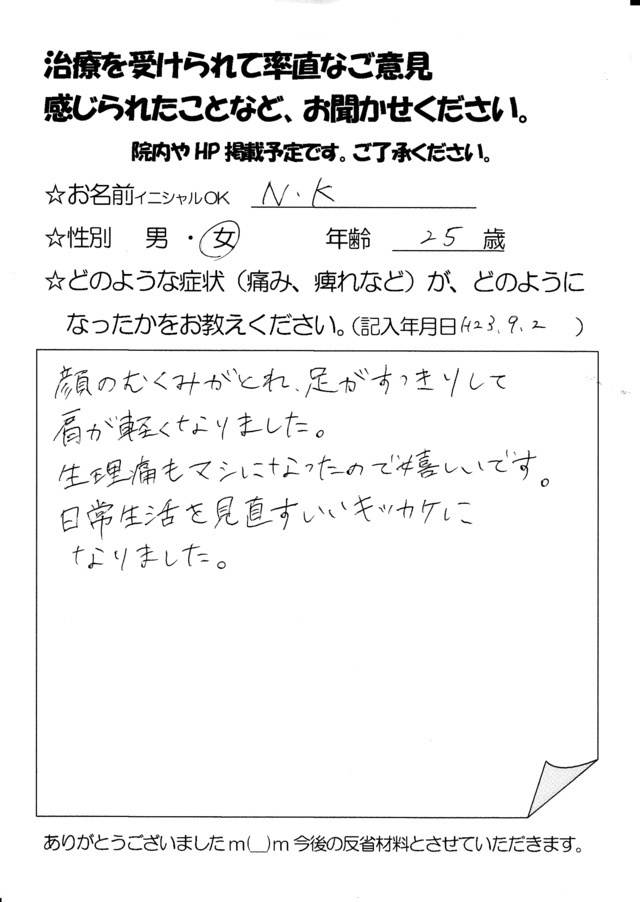 治療を受けられて率直なご意見
感じられたことなど、お聞かせください。
院内やHP掲載予定です。ご了承ください。
☆お名前イニシャルOK N・K
☆性別 男・女 年齢 25 歳
☆どのような症状（痛み、痺れなど）が、どのように
なったかをお教えください。（記入年月日H23.9.2 ）
顔のむくみがとれ、足がすっきりして
肩が軽くなりました。
生理痛もマシになったので嬉しいです。
日常生活を見直すいいキッカケに
なりました。
ありがとうございましたm(__)m今後の反省材料とさせていただきます。